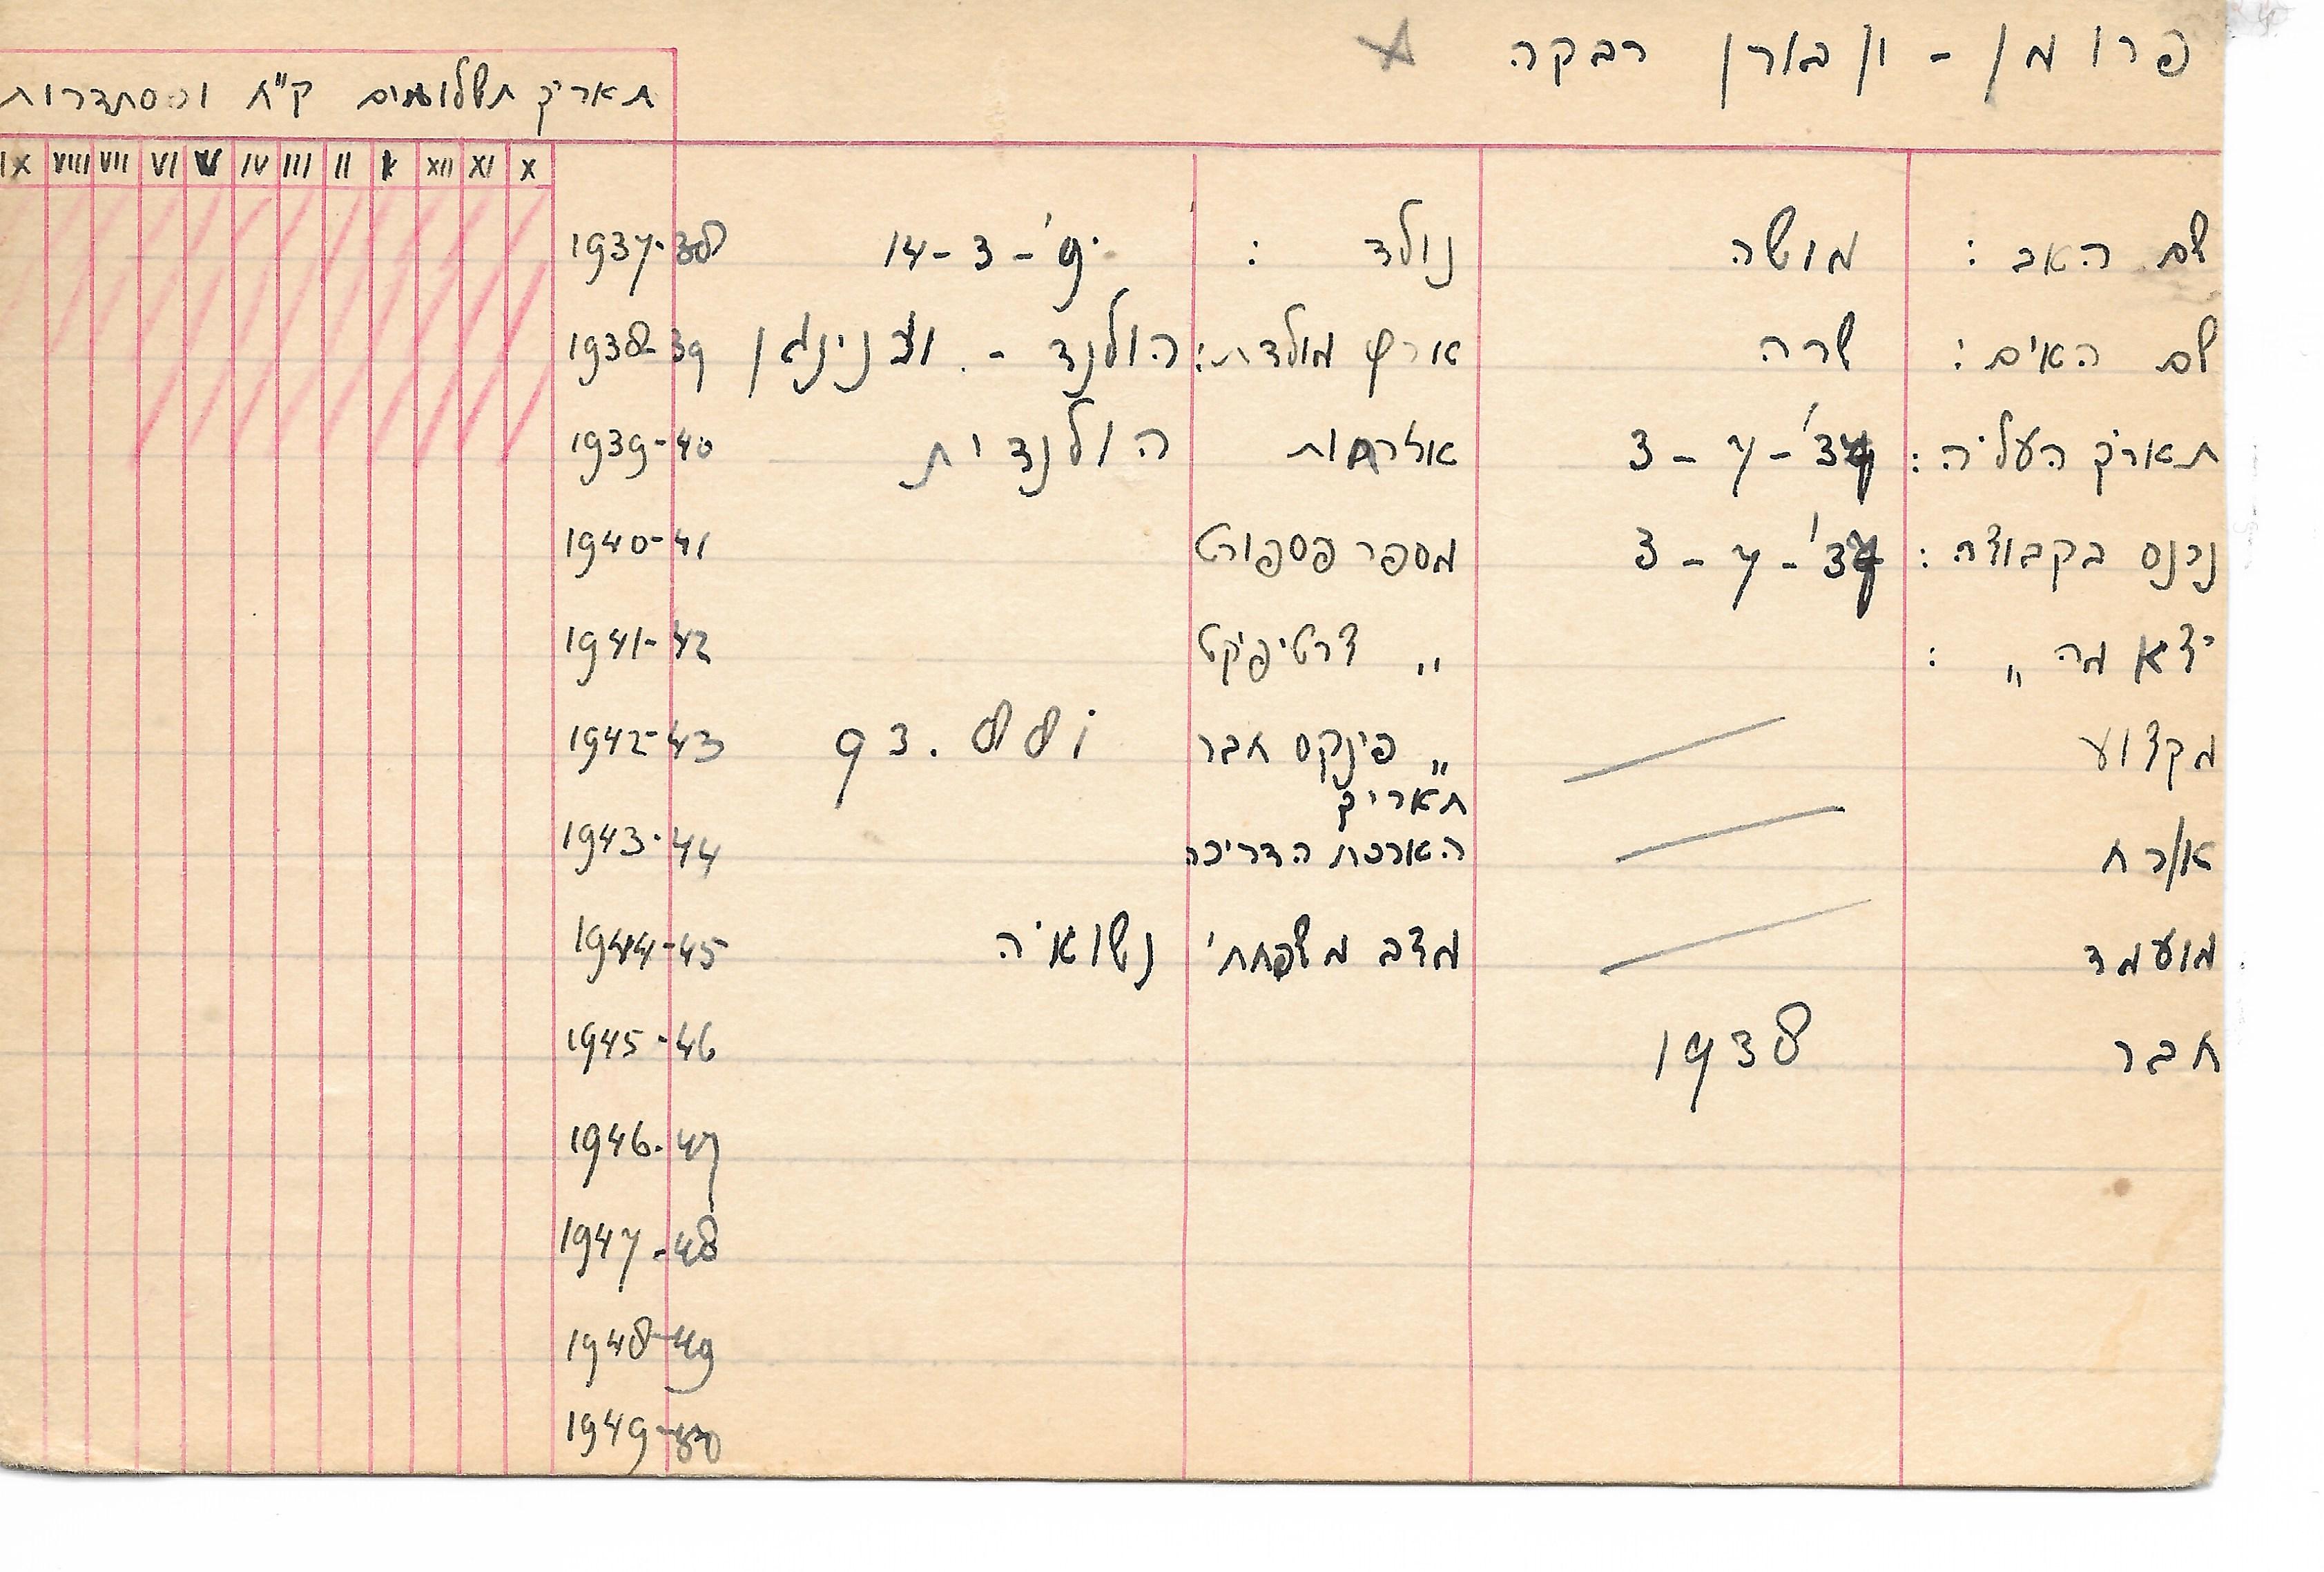 פרומן - ון בורן רבקה
תאריך תשלומים ק"ח והסתדרות
X XI XII I II III IV V VI VII VIII IX
שם האב: מושה נולד: 14-3-'9 1937-38
שם האים: שרה ארץ מולדת: הולנד - 1938-39
תאריך העליה: 3-7-'37 אזרחות הולנדית 1939-40
נכנס בקבוצה: 3-7-'37 מספר פספורט 1940-41
יצא מה " : " צרטיפיקט 1941-42
מקצוע " פינקס חבר 93.881 1942-43
תאריך
אורח הארכת הדריכה 1943-44
מועמד מצב משפחתי נשואיה 1944-45
חבר 1938 1945-46
1946-47
1947-48
1948-49
1949-50